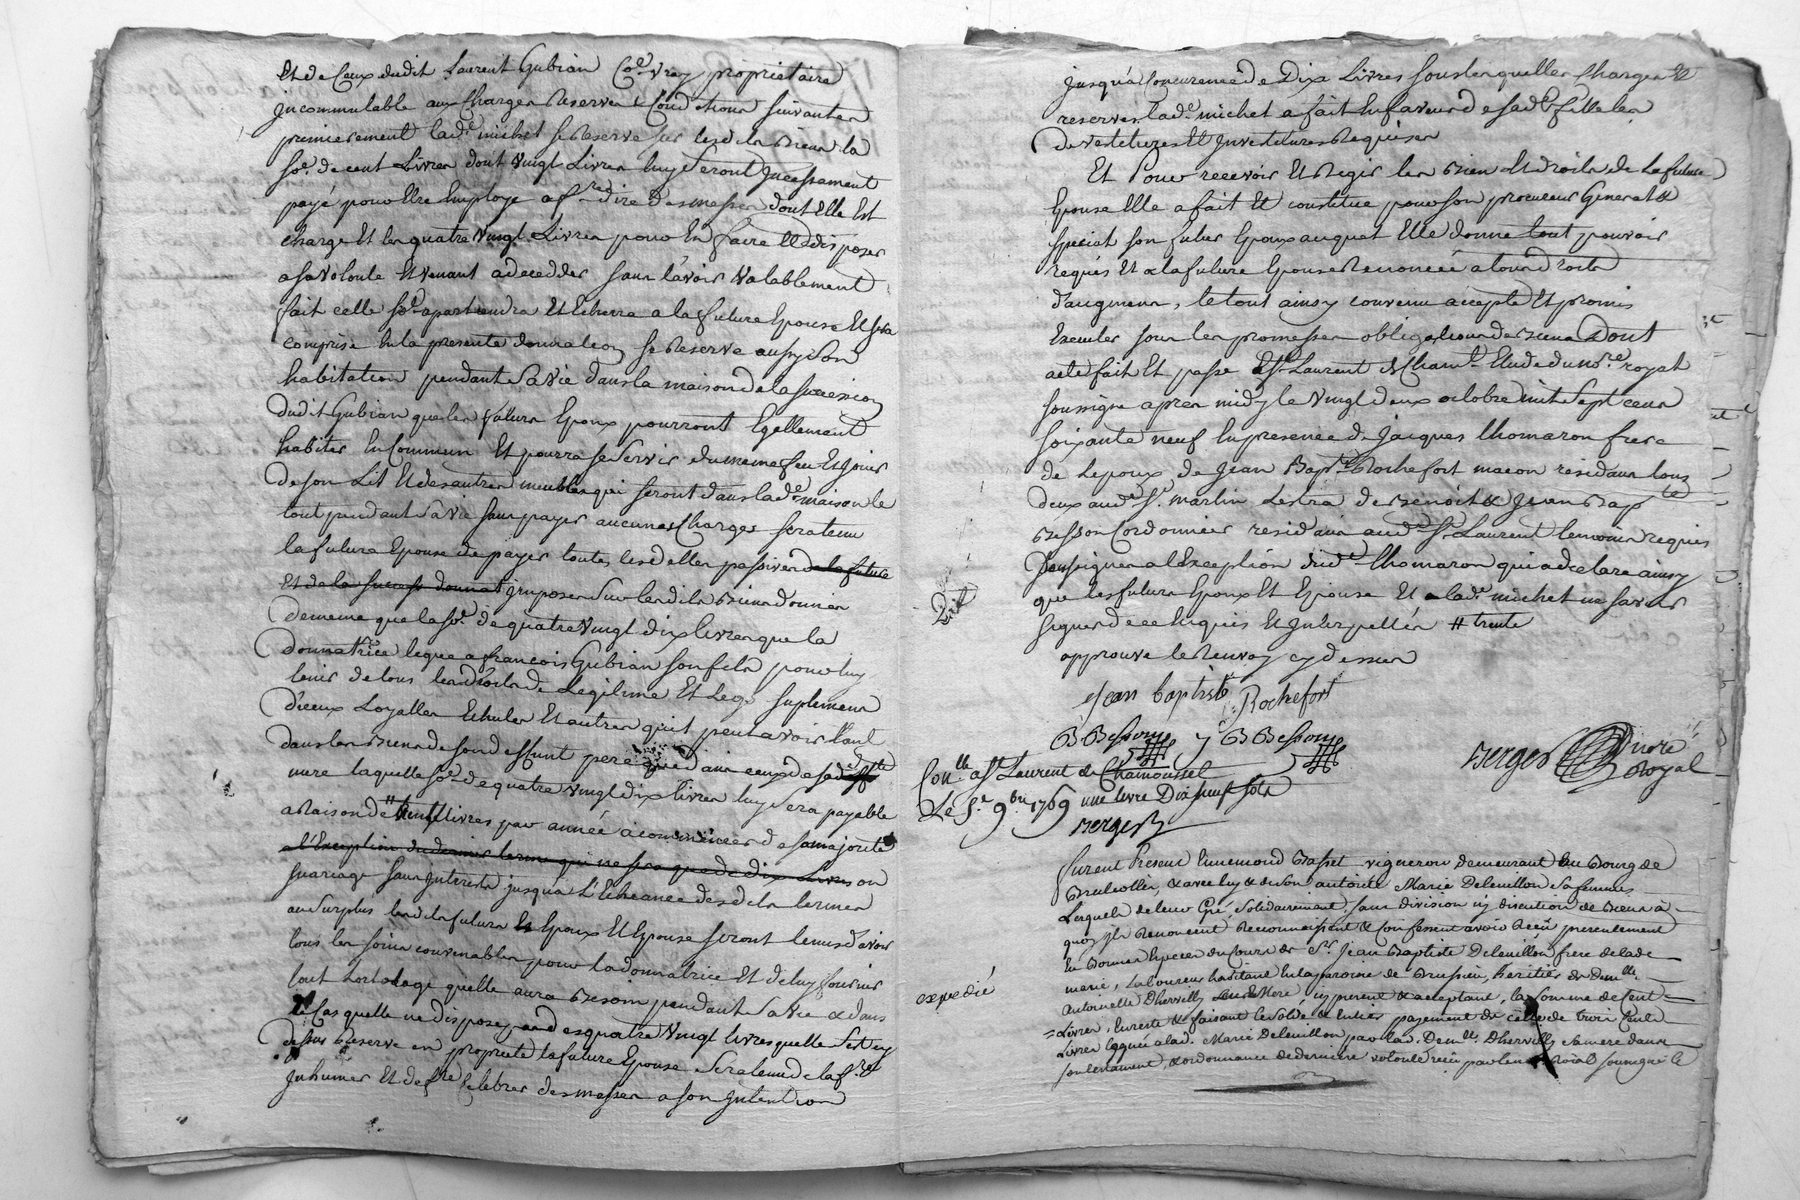 Et de Ceux dudit Laurent Gubian Co.e vray proprietaire
Jncommutable aux Charges Reserves & Conditions suivantes
premierement lad.e michet se Reserve sur lesdits Biens la
so.e de cent Livres dont vingt Livres luy seront Jncessament
payé pour Etre Employe a f.re dire des messes dont Elle Est
chargé Et les quatre vingt Livres pour En faire Et disposer
a sa volonte Et venant a deceder sans l'avoir valablement
fait celle so.e apartiendra Et Echerra a la future Epouse Et sera
comprise En la presente donnation se Reserve aussy son
habitation pendant sa vie dans la maison de la succession
dudit Gubian que les futurs Epoux pourront Egallement
habiter En Commun Et pourra se servir du meme feu Et Jouir
de son Lit Et des autres meubles qui seront dans lad.e maison le
tout pendant sa vie sans payer aucunes Charges sera tenu
la future Epouse de payer toutes les dettes passives de la future
Et de la success donnat jmposés sur lesdits Biens donnés
de meme que la so.e de quatre vingt dix livres que la
donnatrice legue a francois Gubian son fils pour luy
tenir de tous les droits de Legitime Et Leg. suplement
d'iceux Loyalles Echutes Et autres qu'il peut avoir tant
dans les Biens de son deffunt pere que dans ceux de sad.te
mere laquelle so.e de quatre vingt dix livres luy sera payable
a Raison de # vingt livres par année a commencer de sa majorité
a l'Exception du dernier terme qui ne sera que de dix Livres ou
mariage sans Jnterets jusqu'a l'Echeance desdits termes
au surplus lesdits futurs Es Epoux Et Epouse seront tenus d'avoir
tous les soins convenables pour la donnatrice Et de luy fournir
tout Lortolage quelle aura Besoin pendant sa vie & dans
le Cas quelle ne disposeroit des quatre vingt livres quelle s'est cy
dessus Reservé en propriete la future Epouse sera tenue de la f.re
Jnhumer Et de f.re Celebrer des messes a son Jntention
jusqu'a Concurrence de Dix Livres sous lesquelles Charges &
reserves lad.e michet a fait En faveur de sad.e fille les
Devestitures Et Jnvestitures Requises
Et Pour recevoir Et Regir les Biens Et droits de La future
Epouse Elle a fait Et constitue pour son procureur General &
special son futur Epoux auquel Elle donne tout pouvoir
requis Et a la future Epouse Renoncé a tous droits
d'augment, le tout ainsy convenu accepté Et promis
Executer sous les promesses obligations des Biens Dont
acte fait Et passe a St Laurent de Cham.t Etude du no.re royal
soussigné apres midy le vingt deux octobre mil sept cens
soixante neuf En presence de Jacques thomaron frere
de lepoux de Jean Bap.te Rochefort macon residans tous
deux aud.t S.t martin Lestra de Benoit & Jean Bap.te
Besson Cordonnier residans aud.t S.t Laurent temoins requis
De signer a l'Exception dud.t thomaron qui a declare ainsy
que les futurs Epoux Et Epouse Et a lad.e michet ne savoir
signer de ce Enquis Et Jnterpellés # trente
approuve le Renvoy cy dessus
Jean baptiste Rochefort
B Besson J B Besson
Berger no.re Royal
Con.lle a St Laurent de Chamousset
Le 5.e 9.bre 1769 une livre Dix neuf sols
Berger
Furent Presens Ennemond Basset vigneron demeurant au Bourg de
Brulliolles, & avec luy & de son autorité Marie Deleuillon sa femme
Lesquels de leur Gré, solidairement, sans division ny discution de Biens à
quoy jls Renoncent Reconnoissent & Confessent avoir Reçû presentement
En Bonnes Especes du Cours de S.r Jean Baptiste Deleuillon frere de lade
marie, Laboureur habitant En la paroisse de Brussieu, heritier de Dem.lle
Antoinette Dhervilly Leur Mere icy present & acceptant, la somme de Cent
Livres, En reste & faisant le solde & Entier payement de celle de trois Cents
Livres leguée a lad. Marie Deleuillon par lad. Dem.lle Dhervilly sa mere dans
son testament, & ordonnance de derniere volonté reçu par le no.re Roial soussigné le
expedié